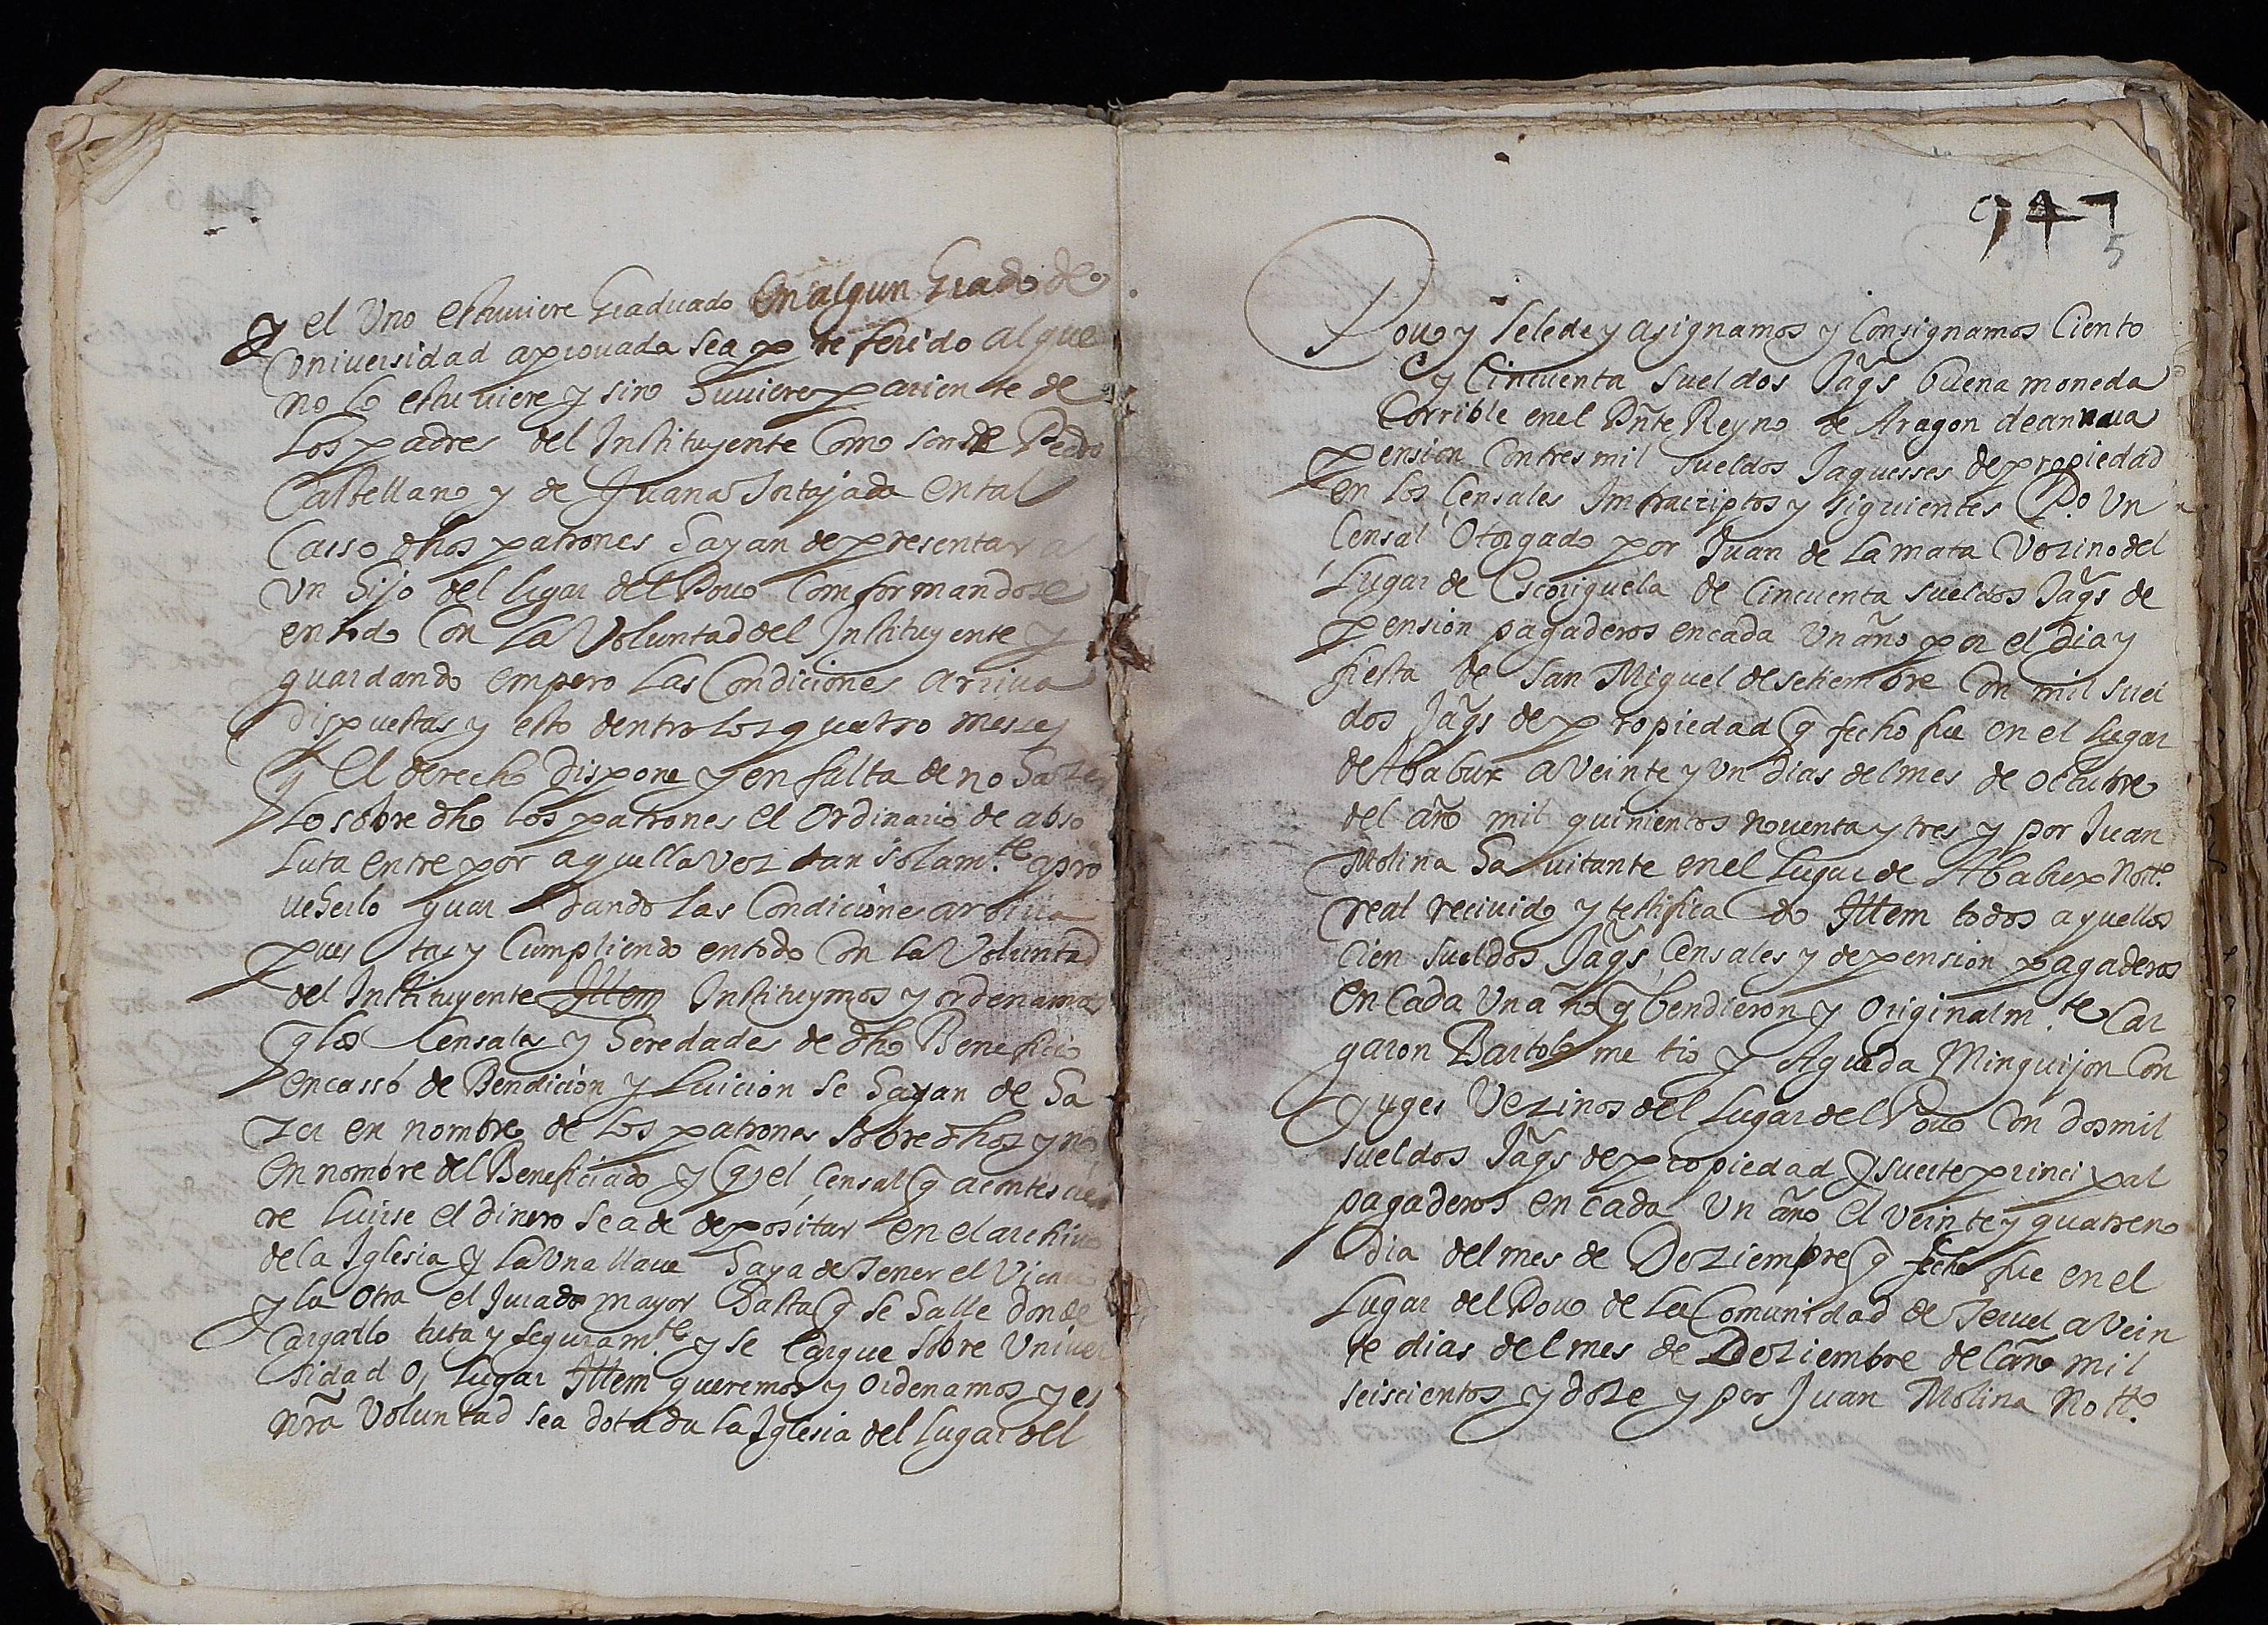 y el Uno estuuiere Graduado en algun Grado de
Uniuersidad aprouada sea preferido al que
no lo estuuiere y sino huuiere pariente de
los padres del Instituyente Como son de Pedro
Castellano y de Juana Intajada en tal
Casso dhos patrones hayan de presentar a
Un hijo del lugar del Pouo Comformandose
en todo Con la Voluntad del Instituyente y
guardando empero las Condiciones arriua
dispuestas y esto dentro los quatro messes
q̃ el derecho dispone y en falta de no hazer
lo sobre dho los patrones el Ordinario de abso
luta entre por aquella vez tan solamte. apro
ueherlo guardando las Condiciones arriua
puestas y Cumpliendo en todo Con la Voluntad
del Instituyente Ittem Instituymos y ordenamos
q̃ los Censales y heredades de dho Beneficio
en casso de Bendicion y Luicion se hayan de ha
zer en nombre de los patrones sobre dhos y no
en nombre del Beneficiado y q̃ el Censal q̃ acontescie
re luirse el dinero sea de depositar en el archiuo
de la Iglesia y la Una llaue haya de tener el Vicario
y la Otra el Jurado mayor Basta q̃ se halle donde
Cargallo tuta y seguramte. y se Cargue sobre Uniuer
sidad O, Lugar Ittem queremos y Ordenamos y es
nr̃a Voluntad sea dotada la Iglesia del Lugar del
5
Pouo y sele de y asignamos y Consignamos Ciento
y Cincuenta sueldos Jaq̃s buena moneda
Corrible en el Pñte Reyno de Aragon de annua
pension Con tres mil sueldos Jaquesses de propiedad
en los Censales Infrascriptos y siguientes P.o Un
Censal Otorgado por Juan de la mata Vezino del
Lugar de Escoriguela de Cincuenta sueldos Jaq̃s de
pension pagaderos en cada Un año por el dia y
fiesta de San Miguel de setiembre Con mil suel
dos Jaq̃s de propiedad q̃ fecho fue en el Lugar
de Ababux a Veinte y Un dias del mes de Octubre
del año mil quinientos nouenta y tres y por Juan
Molina hauitante en el Lugar de Ababux Nott.º
real reciuido y testificado Ittem todos aquellos
Cien sueldos Jaq̃s Censales y de pension pagaderos
en Cada Un año q̃ bendieron y Originalmte. Car
garon Bartolome tio y Agueda Minguijon Con
yuges Vezinos del Lugar del Pouo Con dos mil
sueldos Jaq̃s de propiedad y suerte principal
pagaderos en cada Un año el veinte y quatreno
dia del mes de Deziembre q̃ fecho fue en el
Lugar del Pouo de la Comunidad de Teruel a Vein
te dias del mes de Deziembre del año mil
seiscientos y doze y por Juan Molina Nott.º